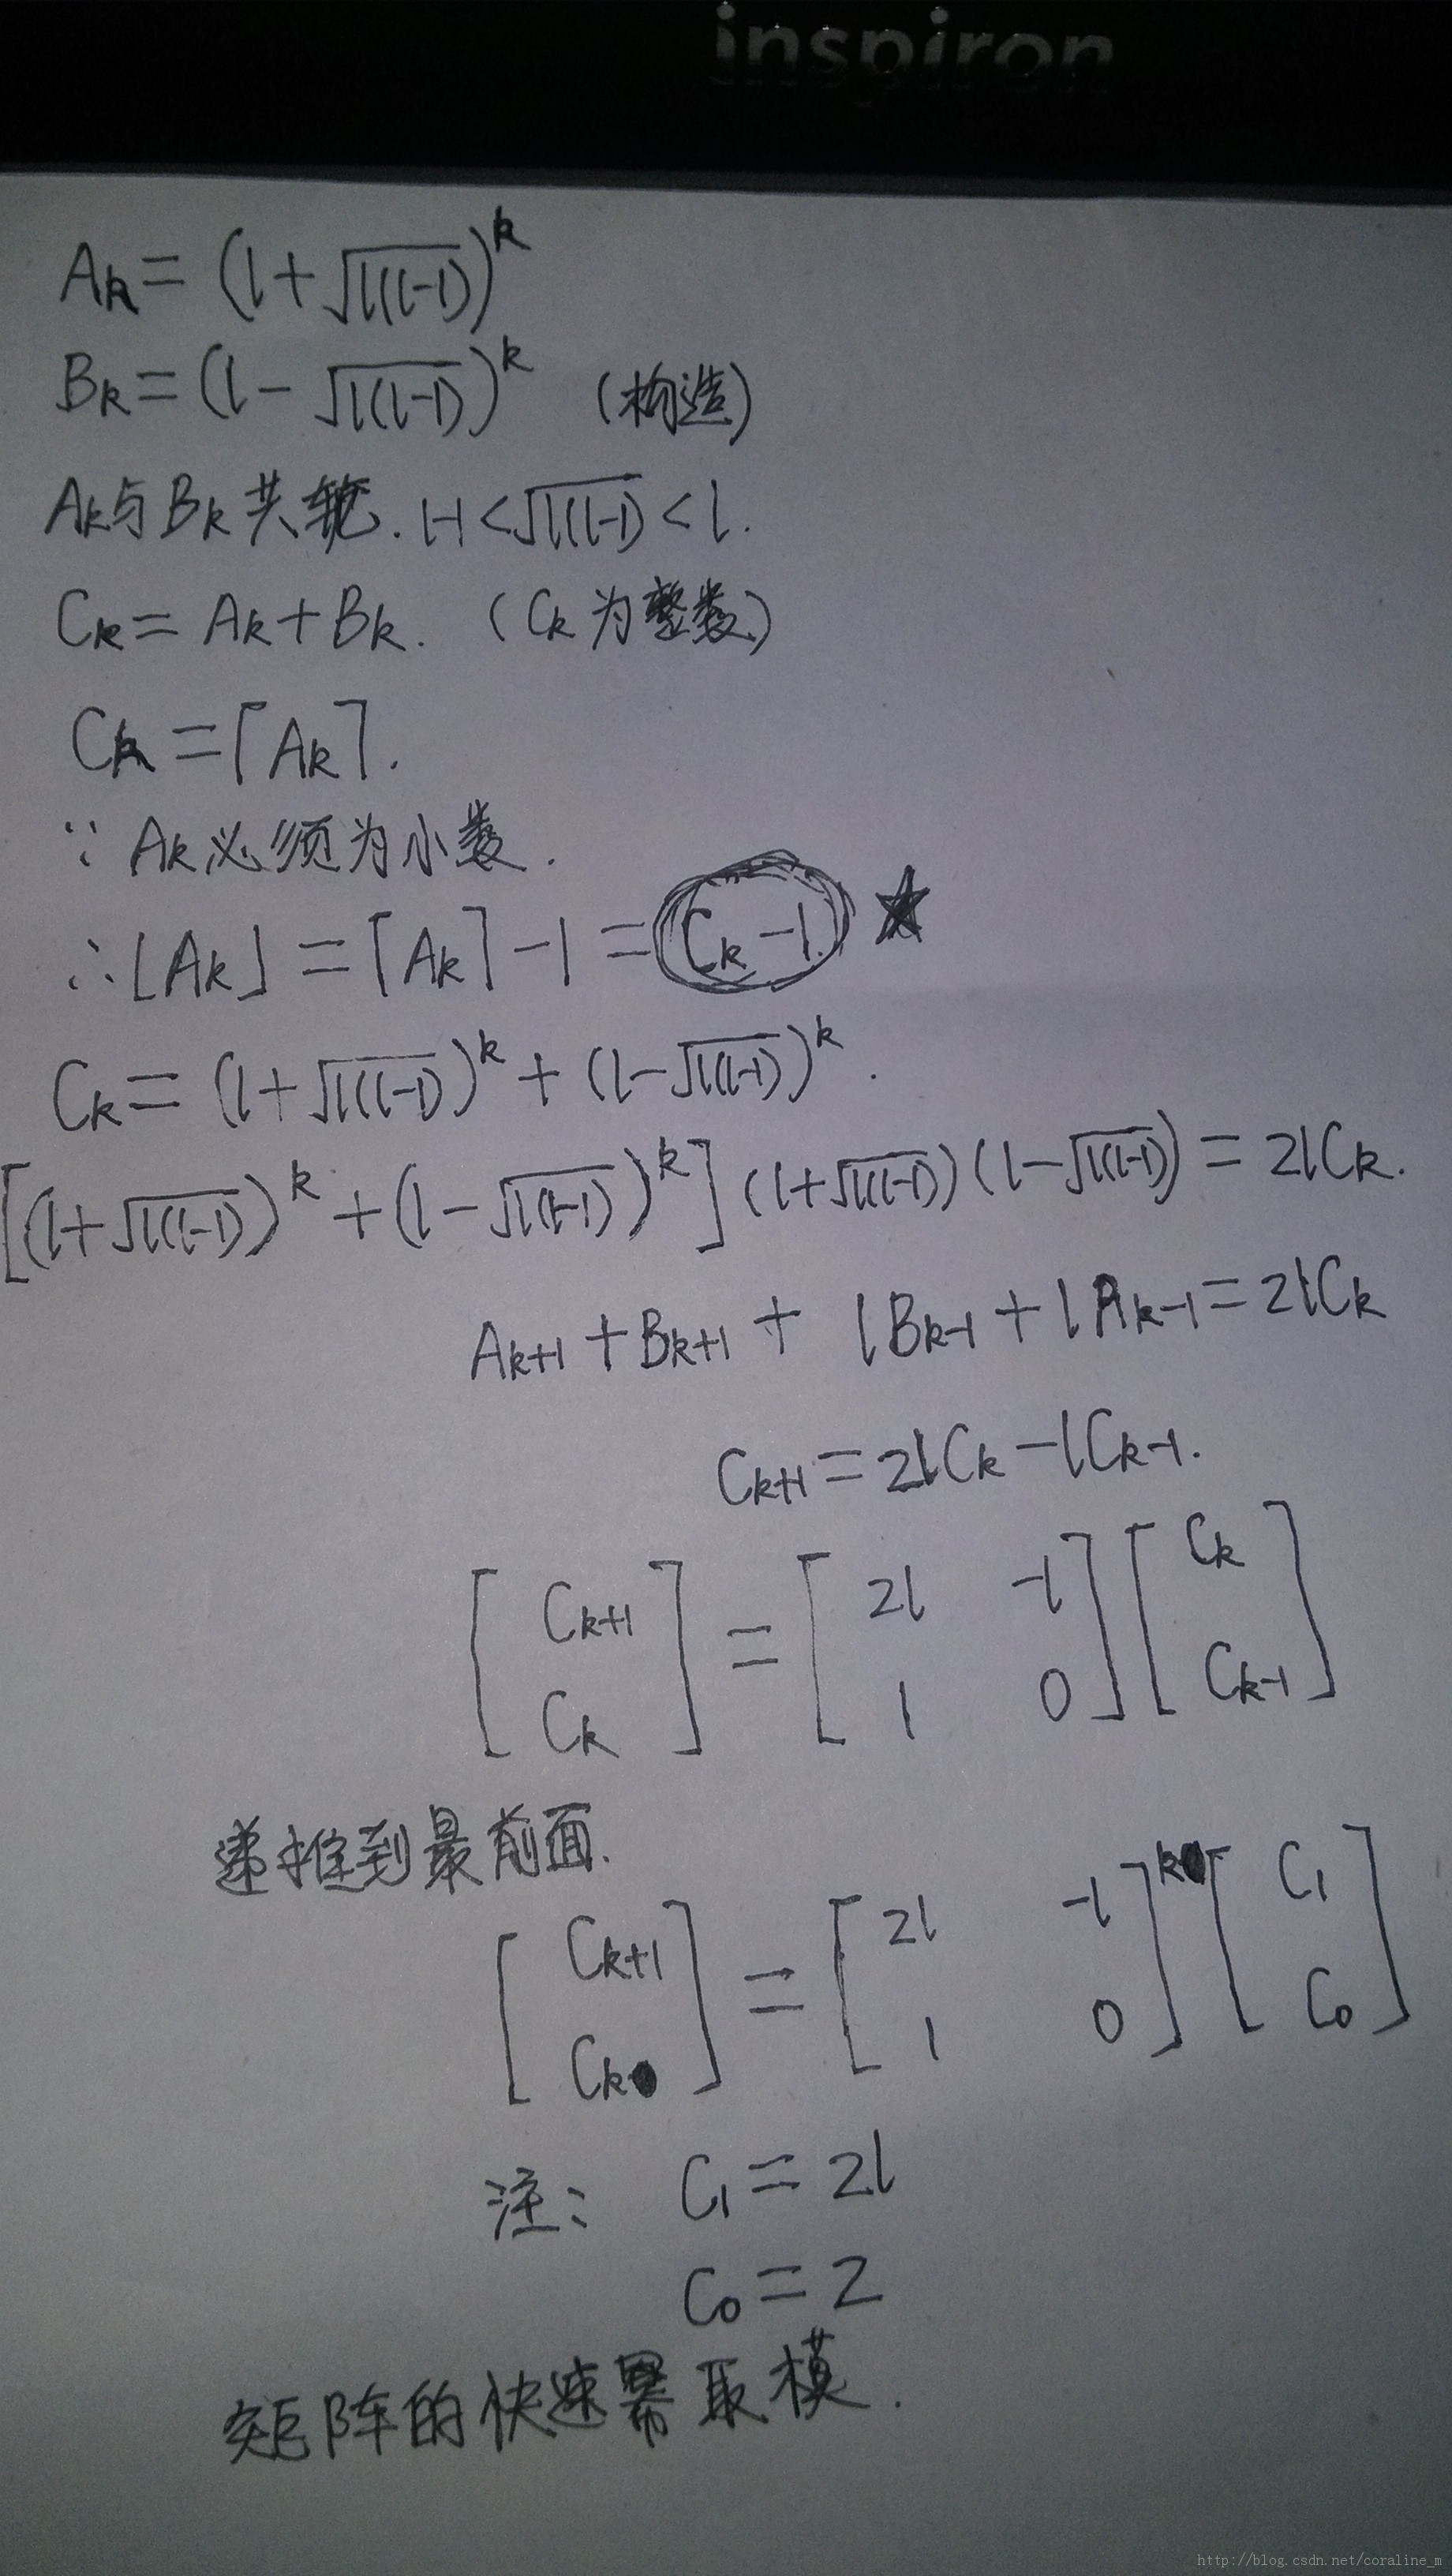 inspiron
A_k = (l + √(l(l-1)))^k
B_k = (l - √(l(l-1)))^k (构造)
A_k与B_k共轭. l-1 < √(l(l-1)) < l.
C_k = A_k + B_k. (C_k为整数)
C_k = ⌈A_k⌉.
∵ A_k必须为小数.
∴ ⌊A_k⌋ = ⌈A_k⌉ - 1 = C_k - 1. ★
C_k = (l + √(l(l-1)))^k + (l - √(l(l-1)))^k.
[(l + √(l(l-1)))^k + (l - √(l(l-1)))^k] (l + √(l(l-1))) (l - √(l(l-1))) = 2lC_k.
A_{k+1} + B_{k+1} + lB_{k-1} + lA_{k-1} = 2lC_k
C_{k+1} = 2lC_k - lC_{k-1}.
[C_{k+1}; C_k] = [2l -l; 1 0] [C_k; C_{k-1}]
递推到最前面.
[C_{k+1}; C_k] = [2l -l; 1 0]^k [C_1; C_0]
注: C_1 = 2l
C_0 = 2
矩阵的快速幂取模.
http://blog.csdn.net/coraline_m